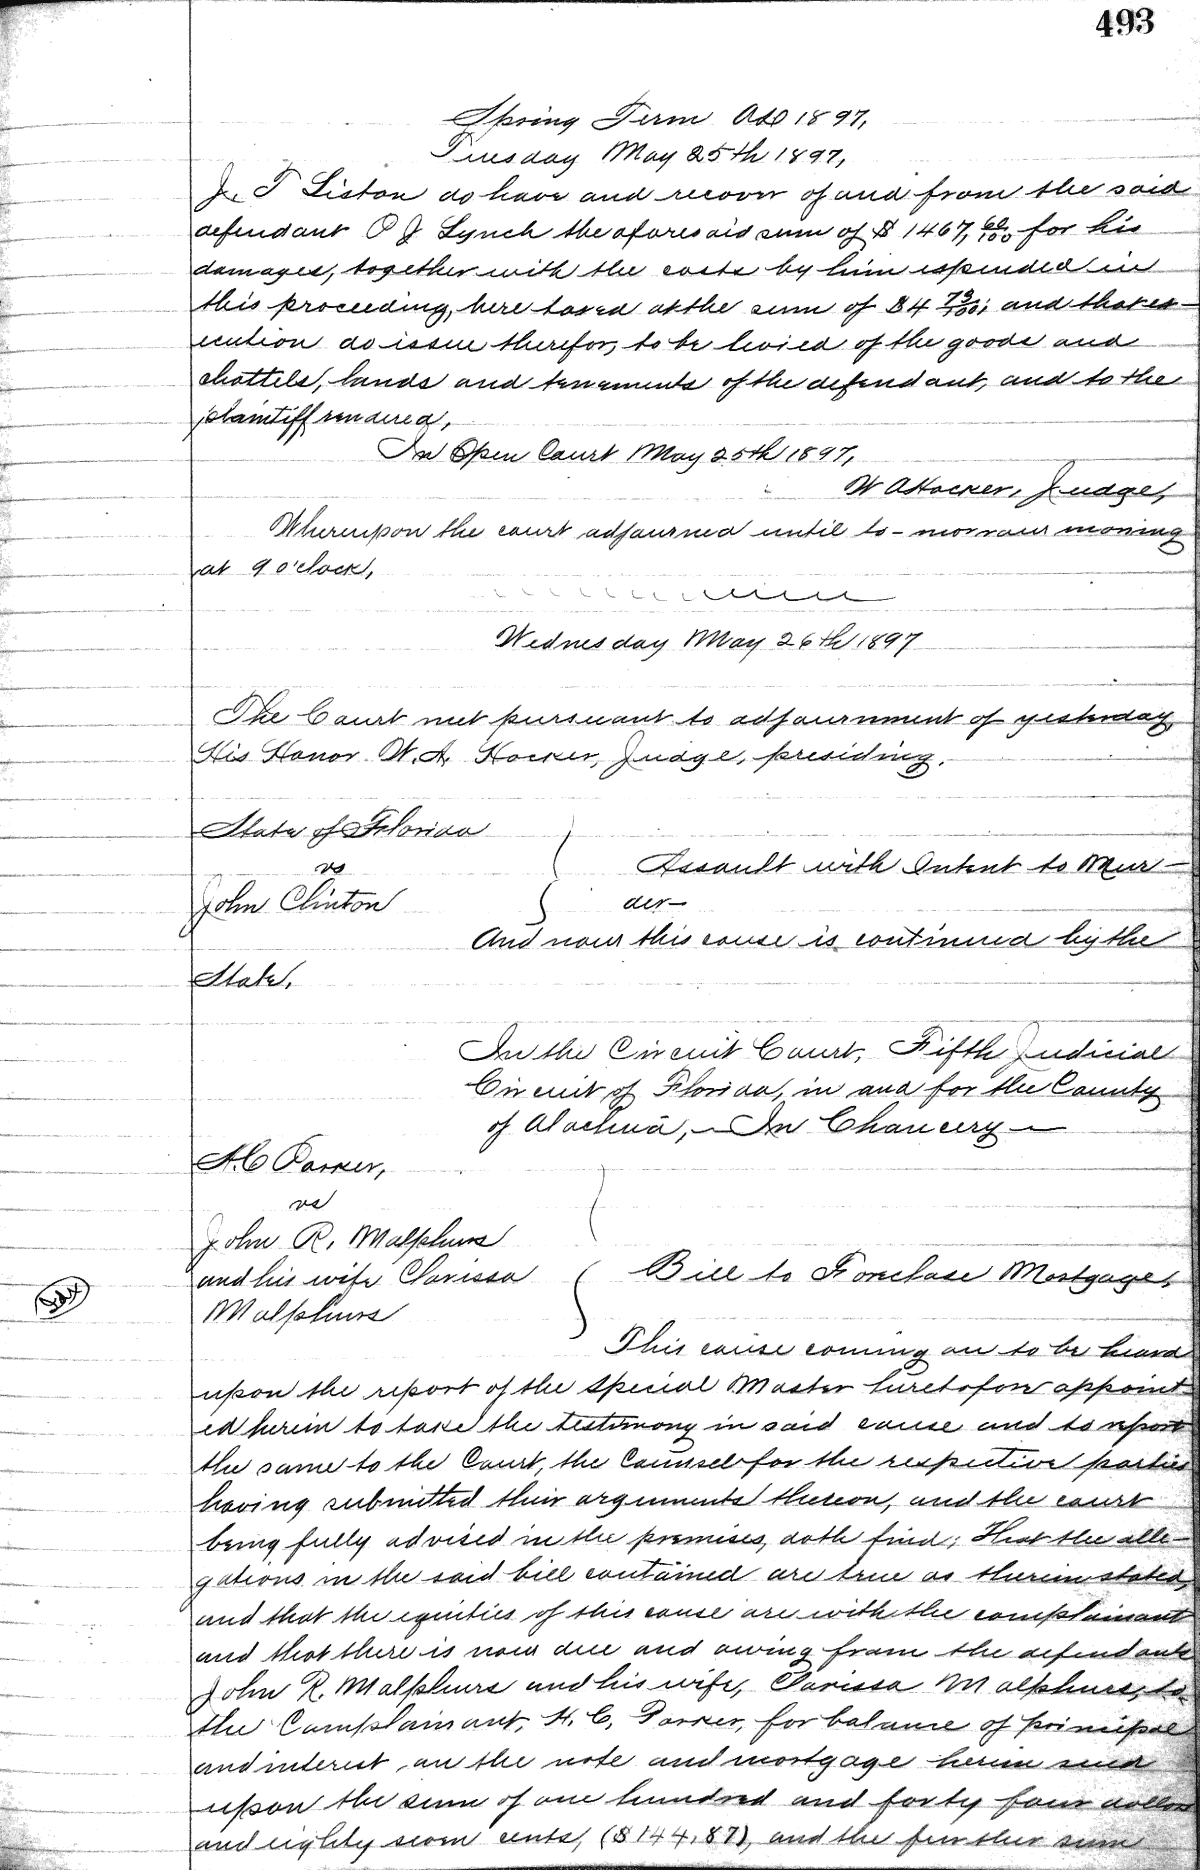 493
Spring Term AD 1897,
Tuesday May 25th 1897,
J. T Liston do have and recover of and from the said
defendant P J Lynch the aforesaid sum of $1467, 60/100 for his
damages, together with the costs by him expended in
this proceeding, here taxed at the sum of $4 73/100; and that ex-
ecution do issue therefor, to be levied of the goods and
chattels, lands and tenements of the defendant, and to the
plaintiff rendered,
In Open Court May 25th 1897,
W A Hocker, Judge,
Whereupon the court adjourned until to-morrow morning
at 9 o'clock,
Wednesday May 26th 1897
The Court met pursuant to adjournment of yesterday,
His Honor W. A. Hocker, Judge, presiding.
State of Florida
vs
Assault with Intent to Mur-
John Clinton
der-
And now this cause is continued by the
State.
In the Circuit Court, Fifth Judicial
Circuit of Florida, in and for the County
of Alachua, In Chancery
H. C Parker,
vs
John R. Malphurs
and his wife Clarissa
Bill to Foreclose Mortgage.
Malphurs
This cause coming on to be heard
upon the report of the Special Master heretofore appoint-
ed herein to take the testimony in said cause and to report
the same to the Court, the Counsel for the respective parties
having submitted their arguments thereon, and the court
being fully advised in the premises, doth find; That the alle-
gations in the said bill contained are true as therein stated,
and that the equities of this cause are with the complainant
and that there is now due and owing from the defendants
John R. Malphurs and his wife, Clarissa Malphurs, to
the Complainant, H. C. Parker, for balance of principal
and interest, on the note and mortgage herein sued
upon the sum of one hundred and forty four dollars
and eighty seven cents, ($144.87), and the further sum